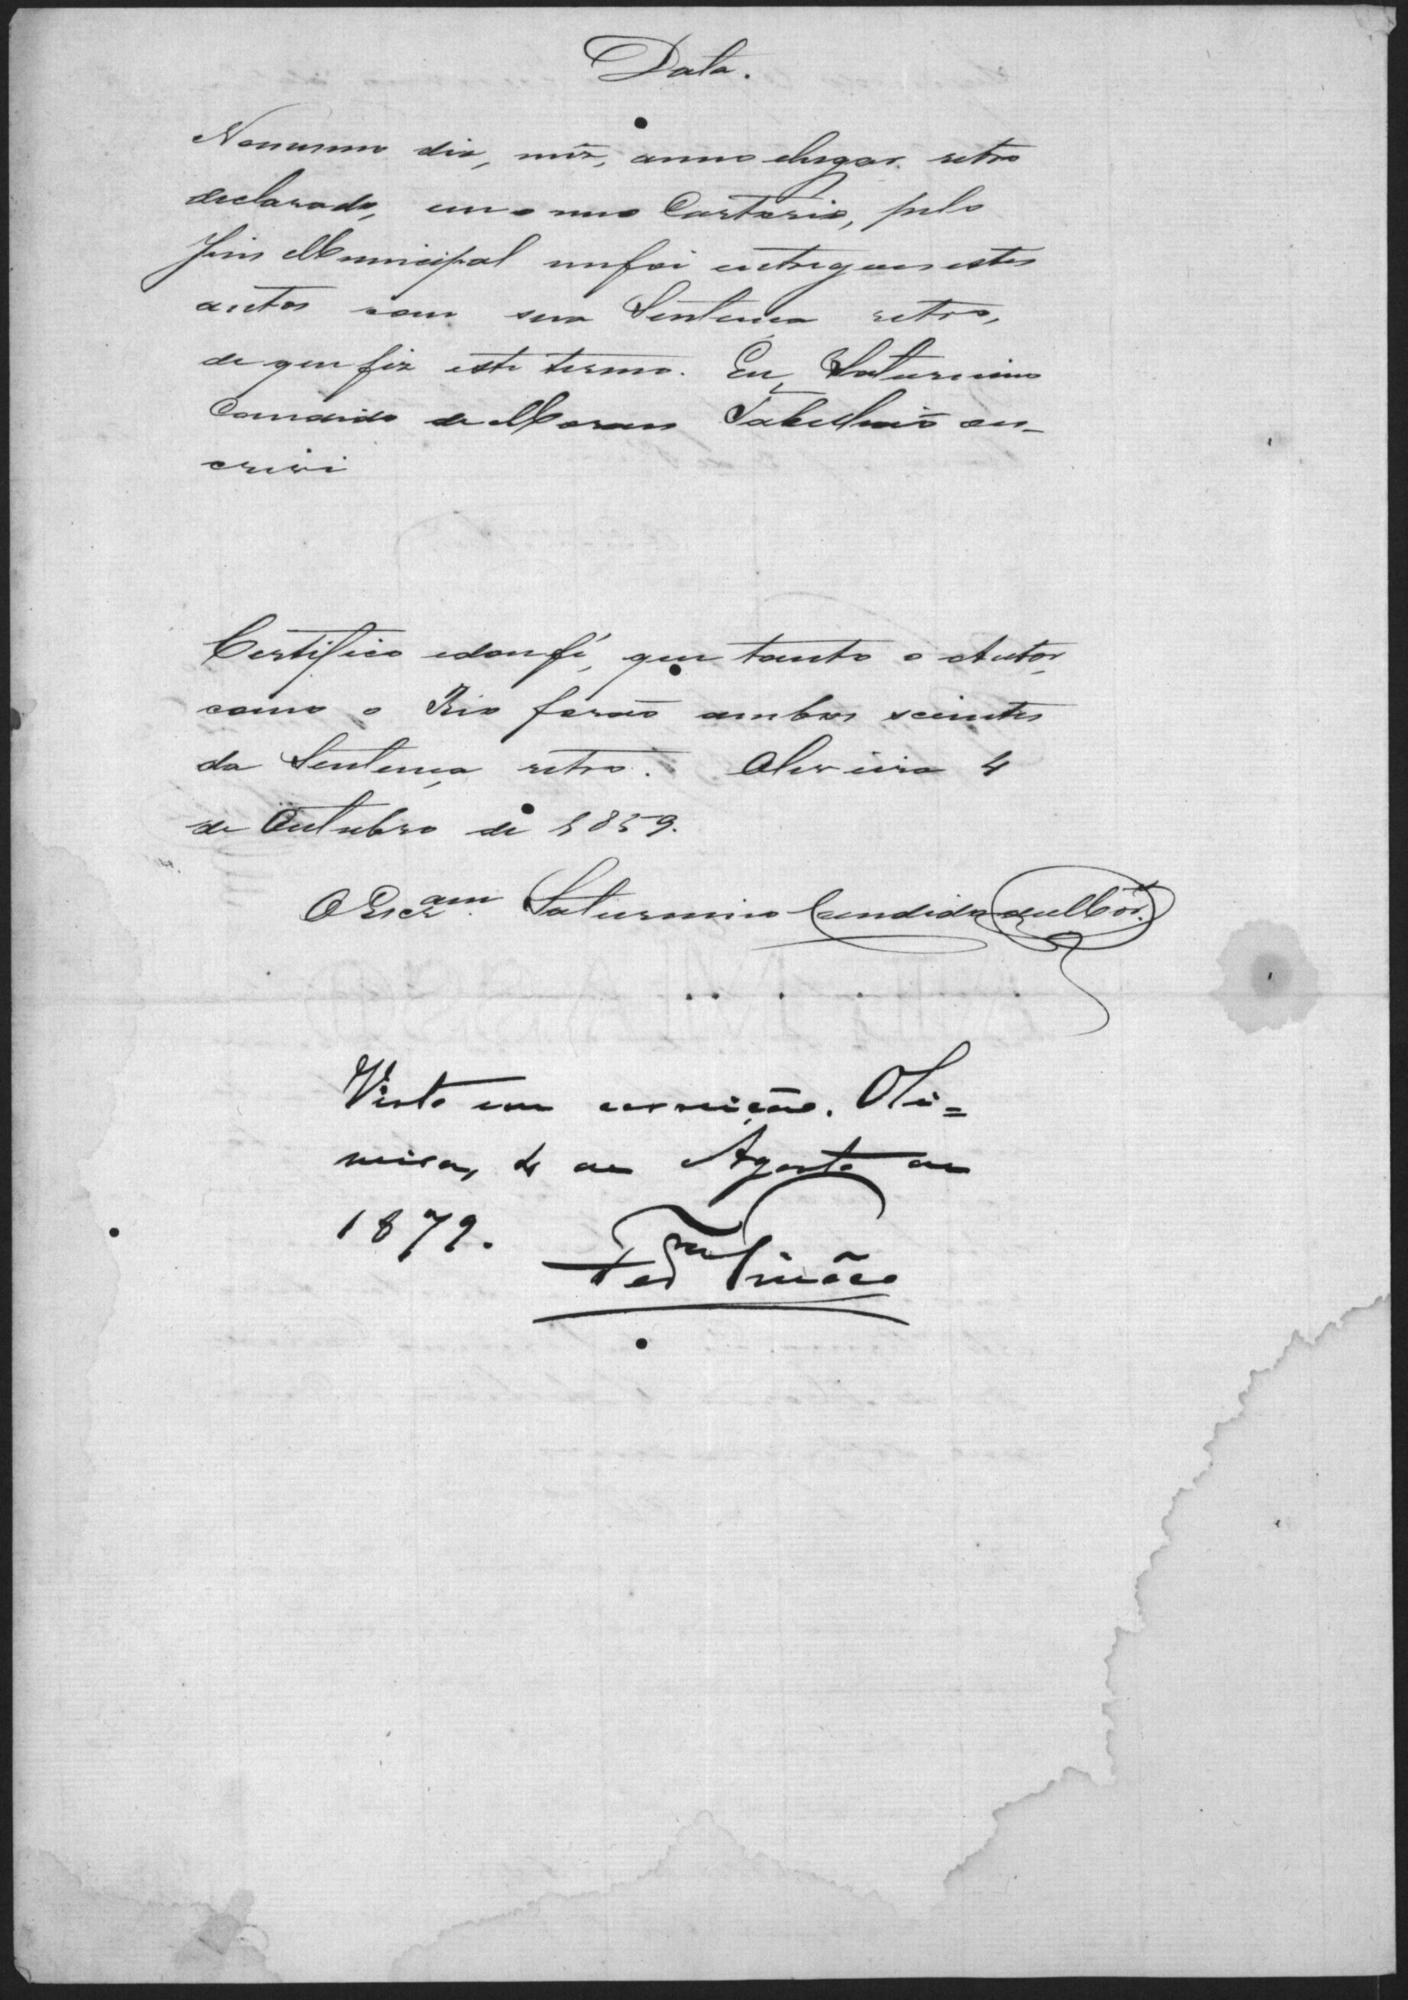 Data.
Nomesmo dia, mez, anno elugar retro
declarado, em o meo Cartorio, pelo
Juis Municipal mefoi entregues estes
autos com sua Sentença retro,
de que fiz este termo. Eu, Saturnino
Candido de Moraes Tabelliaõ es-
crivi
Certifico edoufé, que tanto o Autor,
como o Réo foraõ ambos scientes
da Sentença retro. Oliveira 4
de Outubro de 1859.
O Escr.am Saturnino Candido de
Visto em correição. Oli=
veira, 4 de Agosto de
1879.